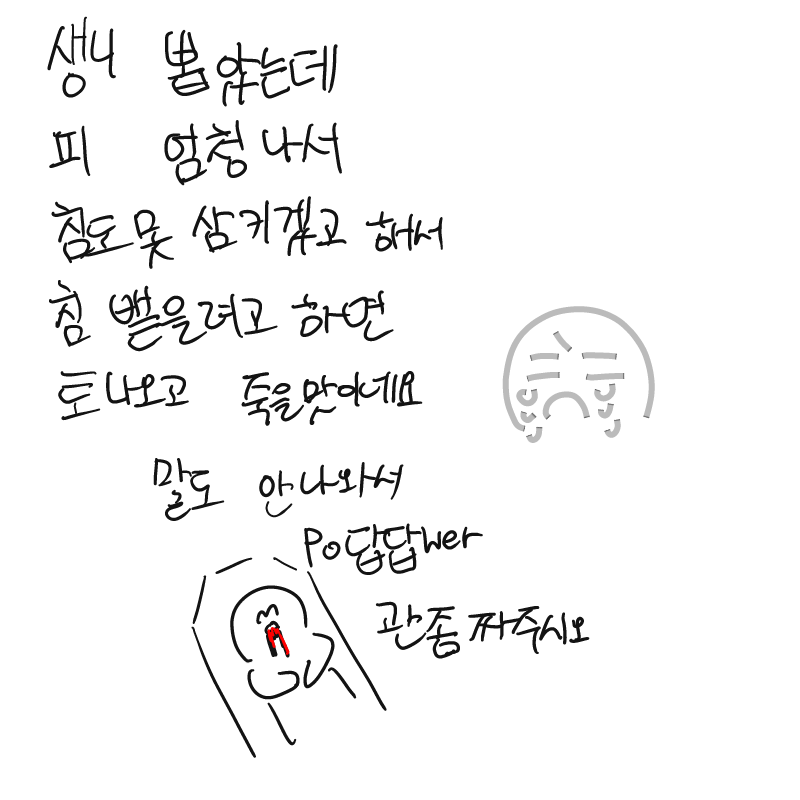 생니 뽑았는데
피 엄청 나서
침도 못 삼키겠고 해서
침 뱉을려고 하면
토 나오고 죽을맛이네요
말도 안나와서
Po답답wer
관좀 짜주시오